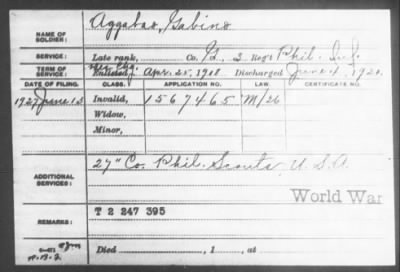 NAME OF SOLDIER: Aggabao, Gabino
SERVICE: Late rank, Co. G, 3 Reg't Phil. Inf.
TERM OF SERVICE: Enlisted Apr. 25, 1918. Discharged June 4, 1920.
DATE OF FILING. CLASS. APPLICATION NO. LAW. CERTIFICATE NO.
1927 June 13 Invalid, 1567465 M/26
Widow,
Minor,
ADDITIONAL SERVICES: 27" Co. Phil. Scouts U S A
World War
REMARKS: T 2 247 395
Died , 1 , at